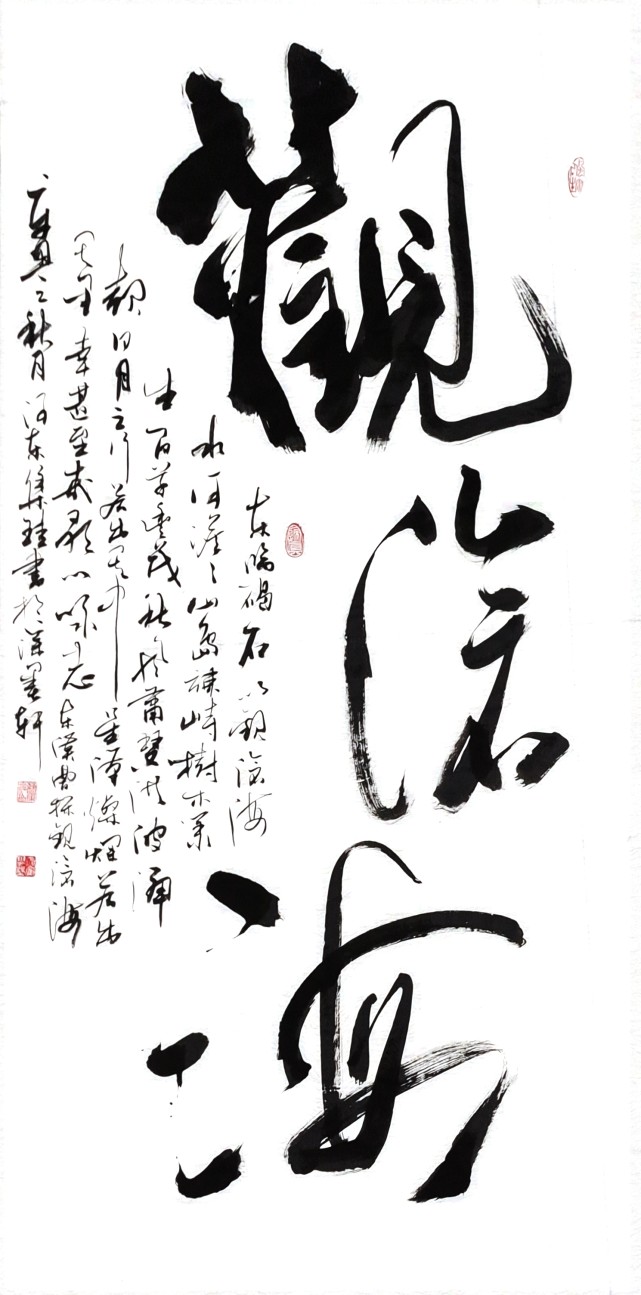 觀滄海
东臨碣石以觀滄海
水何澹〻山島竦峙樹木叢
生百草豐茂秋風蕭瑟洪波涌
起日月之行若出其中星漢燦爛若出
其里幸甚至哉歌以咏志东漢曹操觀滄海
秋月河东集珪書於墨轩